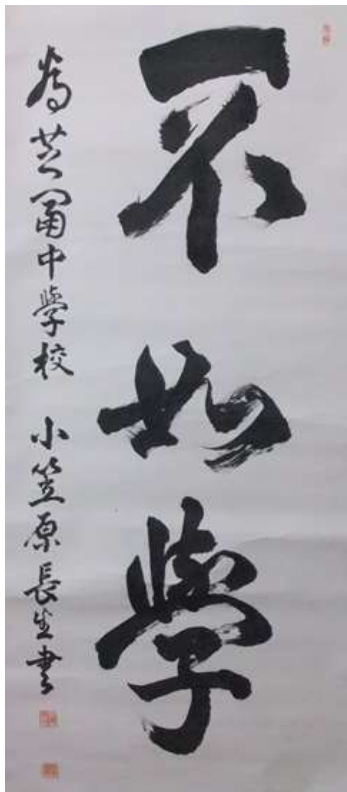 不如學
為芝中學校 小笠原長生書